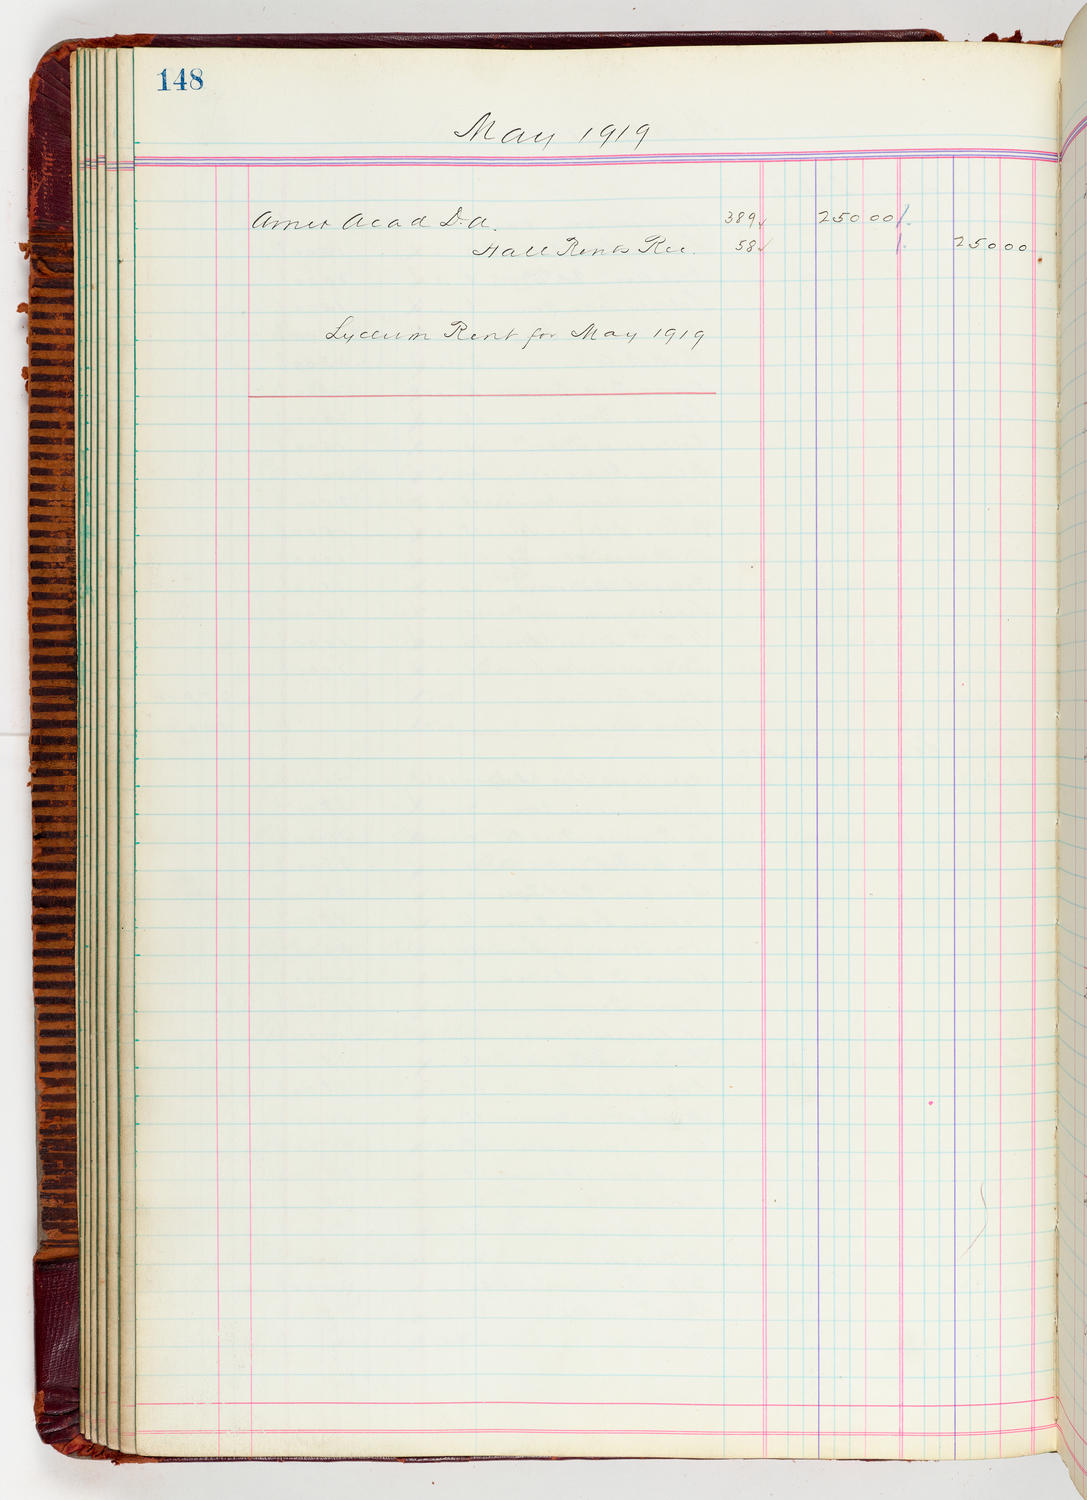 148
May 1919
Amer Acad D.A. 389 ✓ 250 00 /.
Hall Rents Rec. 58 ✓ /. 250 00
Lyceum Rent for May 1919